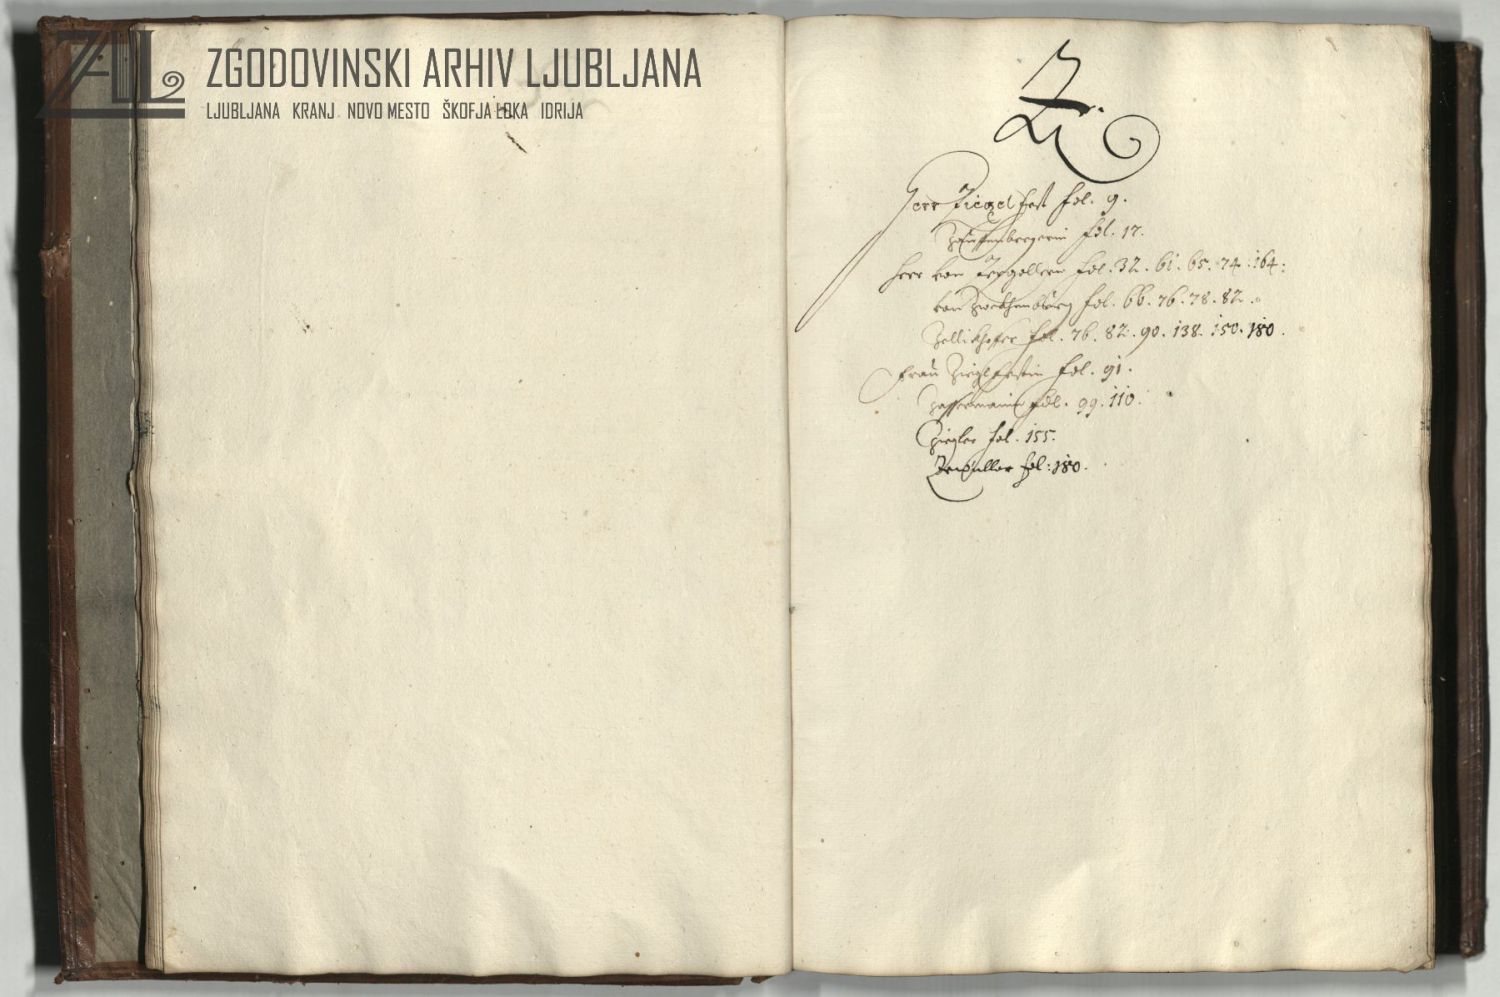 ZAL
ZGODOVINSKI ARHIV LJUBLJANA
LJUBLJANA KRANJ NOVO MESTO ŠKOFJA LOKA IDRIJA
Z.
Herr Ziegelfest fol. 9.
fol. 17.
Herr von fol. 32. 61. 65. 74. 164:
von fol. 66. 76. 78. 82.
Zollikhofer fol. 76. 82. 90. 138. 150. 180.
Frau fol. 91.
fol. 99. 110.
Ziegler fol. 155.
fol: 180.